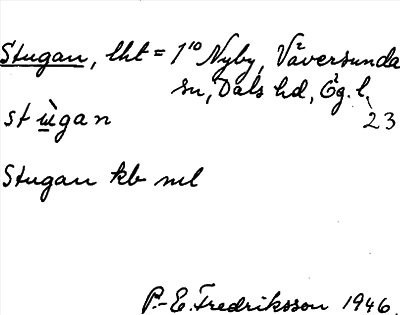 Stugan, lht = 1¹⁰ Nyby, Väversunda
sn, Dals hd, Ög. l.
23
stù̲gan
Stugan kb ml
P.-E. Fredriksson 1946.